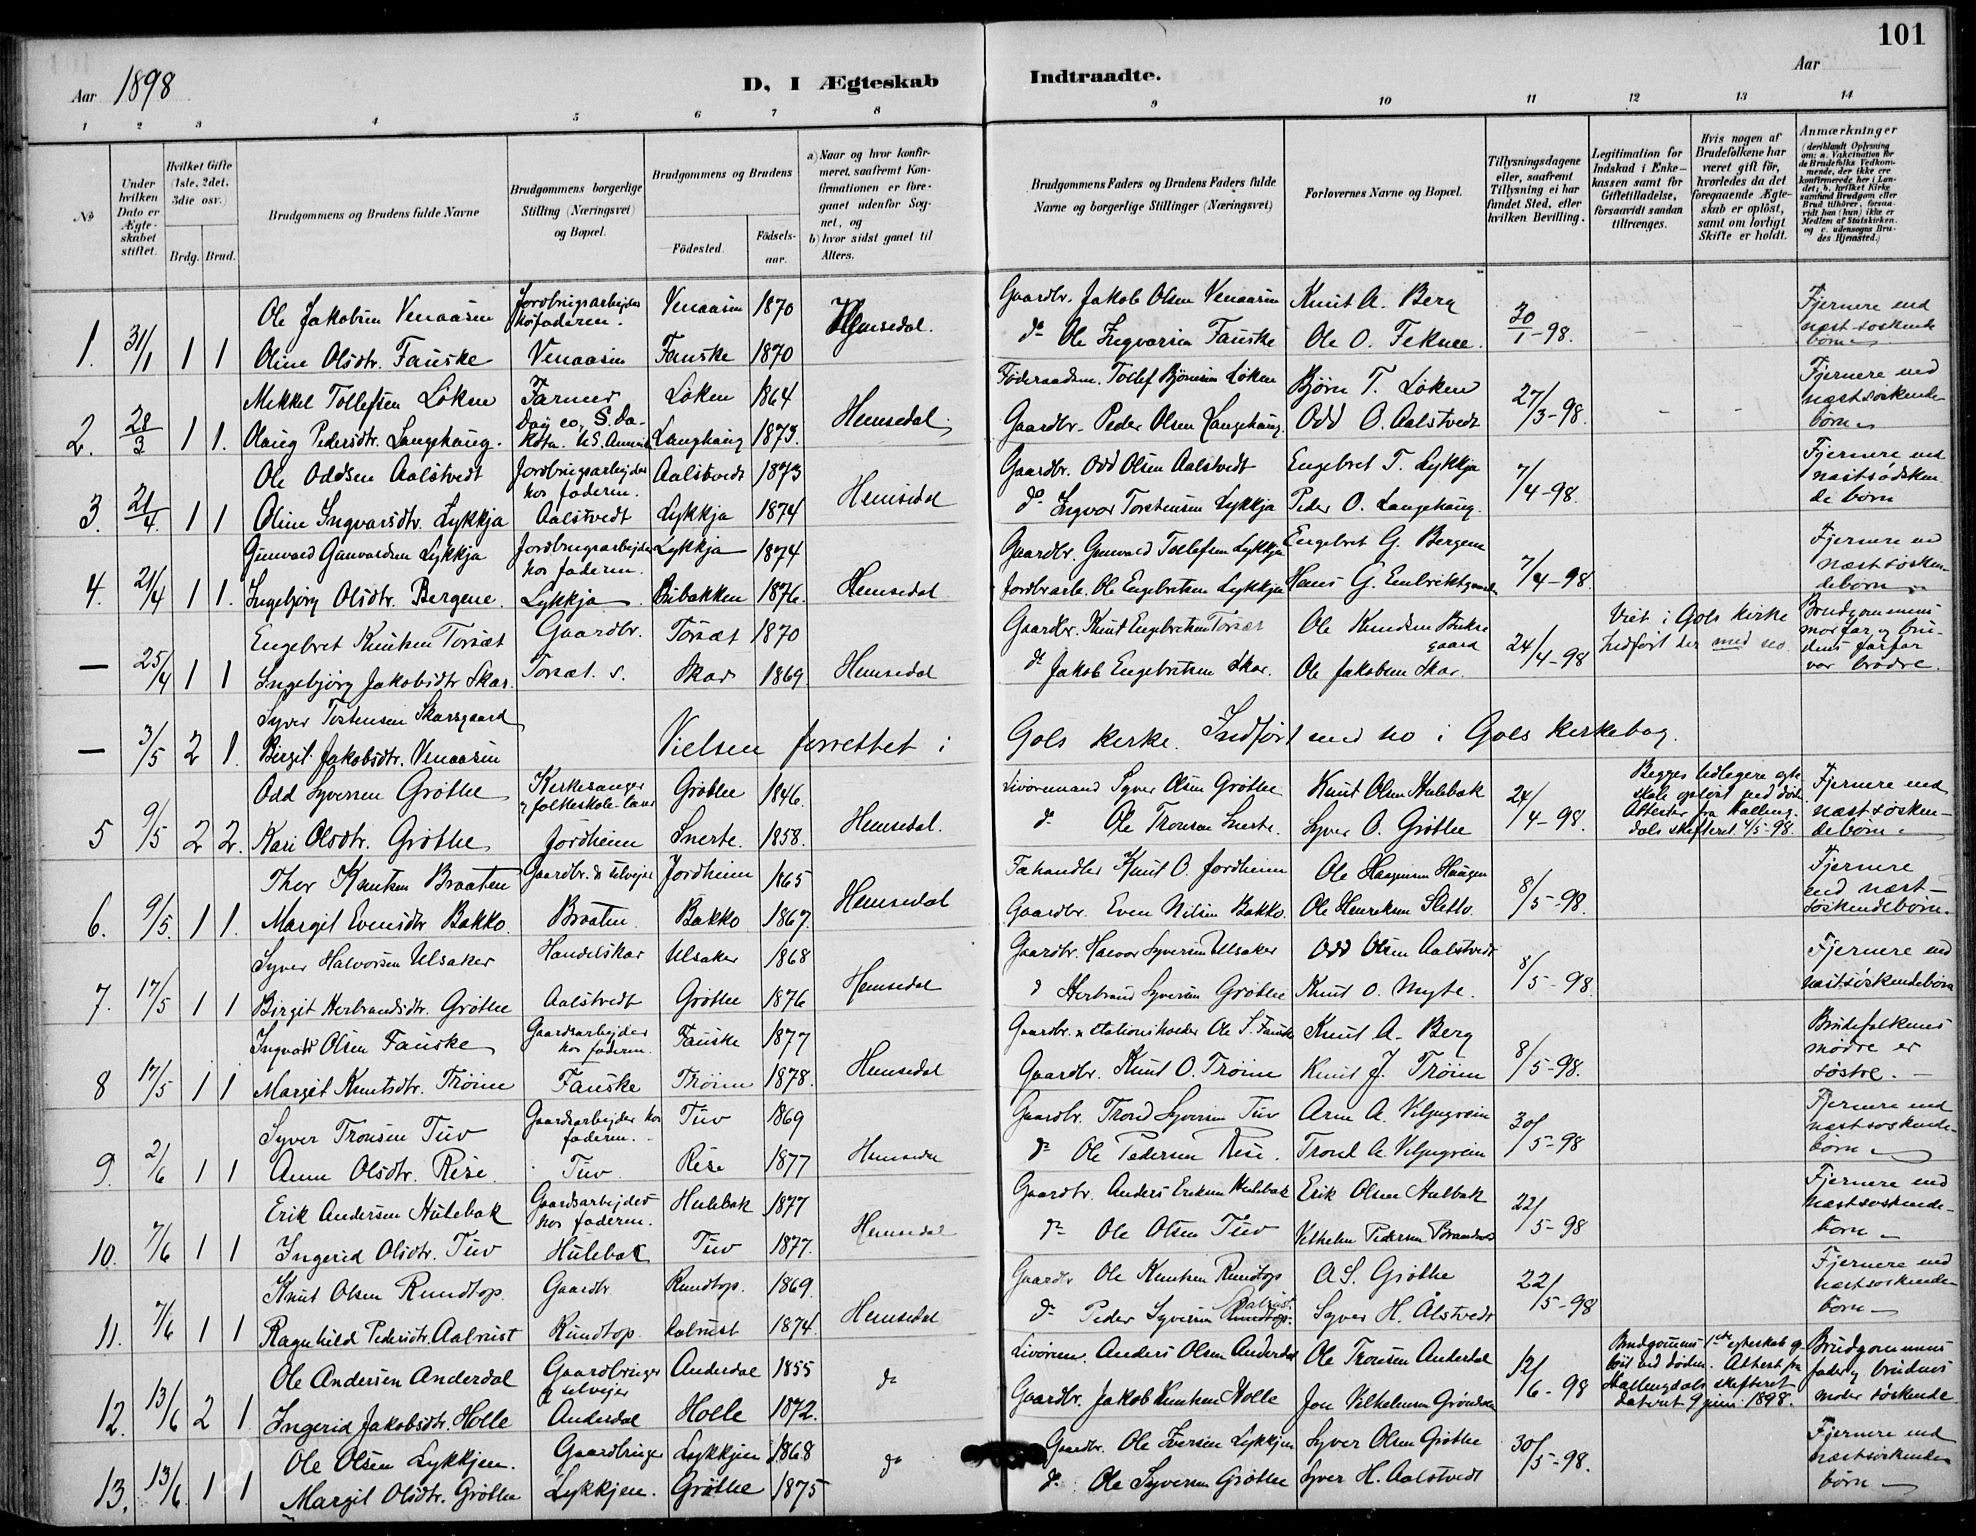 101
Aar 1898
D, I Ægteskab
Indtraadte.
Aar
1 2 3 4 5 6 7 8 9 10 11 12 13 14
No
Under hvilken Dato er Ægteskabet stiftet.
Hvilket Gifte (1ste, 2det, 3die osv.)
Brdg. Brud.
Brudgommens og Brudens fulde Navne
Brudgommens borgerlige Stilling (Næringsvei) og Bopæl.
Brudgommens og Brudens
Födested.
Födselsaar.
a) Naar og hvor konfirmeret, saafremt Konfirmationen er foregaaet udenfor Sognet, og
b) hvor sidst gaaet til Alters.
Brudgommens Faders og Brudens Faders fulde Navne og borgerlige Stillinger (Næringsvei)
Forlovernes Navne og Bopæl.
Tillysningsdagene eller, saafremt Tillysning ei har fundet Sted, efter hvilken Bevilling.
Legitimation for Indskud i Enkekassen samt for Giftetilladelse, forsaavidt saadan tiltrænges.
Hvis nogen af Brudefolkene har været gift før, hvorledes da det foregaaende Ægteskab er opløst, samt om lovligt Skifte er holdt.
Anmærkninger (deriblandt Oplysning om: a. Vakcination for de Brudefolks Vedkommende, der ikke ere konfirmerede her i Landet; b. hvilket Kirkesamfund Brudgom eller Brud tilhører, forsaavidt han (hun) ikke er Medlem af Statskirken, og c. udensogns Brudes Hjemsted.)
1. 31/1 1 1
Ole Jakobsen Venaasen Jordbrugsarbejder hos faderen. Venaasen 1870 Hemsedal. Gaardbr. Jakob Olsen Venaasen Knut A. Berg 30/1-98. - - Fjernere end næstsøskende
Oline Olsdtr. Fauske Venaasen Fauske 1870 do Ole Ingvarsen Fauske Ole O. Teknee. børn
2. 28/3 1 1.
Mikkel Tollefsen Løken Farmer Løken 1864 Hemsedal Føderaadsm. Tollef Bjørnsen Løken Bjørn T. Løken 27/3-98. - - Fjernere end næstsøskende
Olaug Pedersdtr. Langehaug. Day co, S. Dakota. U.S. Langhaug 1873. Gaardbr. Peder Olsen Langehaug Odd O. Aalstvedt børn
3. 21/4. 1 1
Ole Oddsen Aalstvedt Jordbrugsarbejder hos faderen. Aalstvedt 1873 Hemsedal Gaardbr. Odd Olsen Aalstvedt Engebret T. Lykkja 7/4-98. Fjernere end næstsødsken
Oline Ingvarsdtr. Lykkja Aalstvedt Lykkja 1874 do Ingvar Torstensen Lykkja Peder O. Langehaug. de børn
4. 21/4 1 1.
Gunvald Gunvaldsen Lykkja Jordbrugsarbejder hos faderen. Lykkja 1874 Hemsedal Gaardbr. Gunvald Tollefsen Lykkja Engebret G. Bergene 7/4-98 Fjernere end næstsøsken
Ingebjørg Olsdtr. Bergene. Lykkja Bibakken 1876. Jordbrarb. Ole Engebretsen Lykkja Hans G. debørn
— 25/4 1 1
Engebret Knutsen Torsæt Gaardbr. Torsæt 1870 Hemsedal Gaardbr. Knut Engebretsen Torsæt Ole Knudsen gaard 24/4-98 Viet i Gols kirke Brudgommens morfar og bru-
Ingebjørg Jakobsdtr Skar. Torsæt. s. Skar 1869. do Jakob Engebretsen Skar. Ole Jakobsen Skar. Indført der med no. dens farfar var brødre.
— 3/5 2 1.
Syver Torstensen Skarsgaard
Birgit Jakobsdtr. Venaasen Vielsen forrettet i Gols kirke. Indført med no i Gols kirkebog.
5 9/5 2 2.
Odd Syversen Grøthe Kirkesanger og folkeskole Grøthe 1846. Hemsedal. Livøremand Syver Olsen Grøthe Knut Olsen Hulebak 24/4-98. Begges tidligere egteskab opløst ved død. Fjernere end næstsøsken-
Kari Olsdtr. Grøthe Jordheim Snerte. 1858. do Ole Tronsen Snerte. Syver O. Grøthe Attester fra Hallingdals skifteret 4/5-98. debørn
6. 9/5. 1 1.
Thor Knutsen Braaten Gaardbr. & selvejer Jordheim 1865 Hemsedal Fæhandler Knut O. Jordheim Ole Haagensen Haugen 8/5-98. Fjernere end næst-
Margit Evensdtr Bakko. Braaten Bakko 1867. Gaardbr. Even Nilsen Bakko. Ole Henriksen Sletto. søskendebørn.
7. 17/5 1 1
Syver Halvorsen Ulsaker Handelskar Ulsaker 1868 Hemsedal Gaardbr. Halvor Syversen Ulsaker Odd Olsen Aalstvedt 8/5-98. Fjernere end
Birgit Herbrandsdtr. Grøthe Aalstvedt Grøthe 1876 do Herbrand Syversen Grøthe Knut O. Myte. næstsøskendebørn
8 17/5 1 1
Ingvald Olsen Fauske Gaardsarbejder hos faderen. Fauske 1877 Hemsedal Gaardbr. & stationsholder Ole S. Fauske Knut A. Berg 8/5-98. Brudefolkenes mødre er
Margit Knutsdtr. Trøim Fauske Trøim 1878. Gaardbr. Knut O. Trøim Knut J. Trøim søstre. -
9. 2/6 1 1
Syver Tronsen Tuv Gaardsarbejder hos faderen. Tuv 1869 Hemsedal Gaardbr. Trond Syversen Tuv Arne A. Viljugrein 30/5-98 Fjernere end næstsøskende-
Anne Olsdtr. Rise. Tuv Rise 1877 do Ole Pedersen Rise. Trond A. Viljugrein børn
10. 7/6 1 1
Erik Andersen Hulebak Gaardsarbejder hos faderen. Hulebak 1877 Hemsedal Gaardbr. Anders Eriksen Hulebak Erik Olsen Hulbak 22/5-98 Fjernere end næstsøskende-
Ingerid Olsdtr. Tuv Hulebak Tuv 1877. do Ole Olsen Tuv Vilhelm Pedersen børn
11. 7/6 1 1
Knut Olsen Rundtop. Gaardbr Rundtop. 1869. Hemsedal Gaardbr Ole Knutsen Rundtop A S. Grøthe 22/5-98 Fjernere end næstsøskende
Ragnhild Pedersdtr. Aalrust Rundtop. Aalrust 1874. do Peder Syversen Aalrust Rundtop. Syver H. Ålstvedt børn
12. 13/6 2 1.
Ole Andersen Anderdal Gaardbruger & selvejer Anderdal 1855 do Livørem. Anders Olsen Anderdal Ole Tronsen Anderdal 12/6-98 Brudgomens 1ste egteskab opløst ved døden. Attest fra Brudgommens fader og brudens
Ingerid Jakobsdtr. Holle Anderdal Holle 1872. Gaardbr. Jakob Knutsen Holle Jon Vilhelmsen Grøndalen Hallingdals skifteret datert 9 juni 1898. moder søskende
13. 13/6 1 1
Ole Olsen Lykkjen. Gaardbruger Lykkjen 1868 do Gaardbr. Ole Iversen Lykkjen Syver Olsen Grøthe 30/5-98. Fjernere end næstsøskende
Margit Olsdtr. Grøthe Lykkjen. Grøthe 1875 do Ole Syversen Grøthe Syver H. Aalstvedt børn